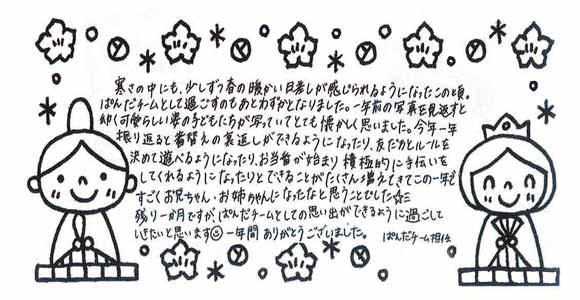 寒さの中にも、少しずつ春の暖かい日差しが感じられるようになったこの頃。
ぱんだチームとして過ごすのもあとわずかとなりました。一年前の写真を見返すと
幼く可愛らしい姿の子どもたちが写っていてとても懐かしく思いました。今年一年
振り返ると着替えの裏返しができるようになったり、友だちとルールを
決めて遊べるようになったり、お当番が始まり積極的に手伝いを
してくれるようになったりとできることがたくさん増えてきてこの一年で
すごくお兄ちゃん・お姉ちゃんになったなと思うことでした☆ミ
残り一か月ですが、ぱんだチームとしての思い出ができるように過ごして
いきたいと思います☺一年間ありがとうございました。 ぱんだチーム担任